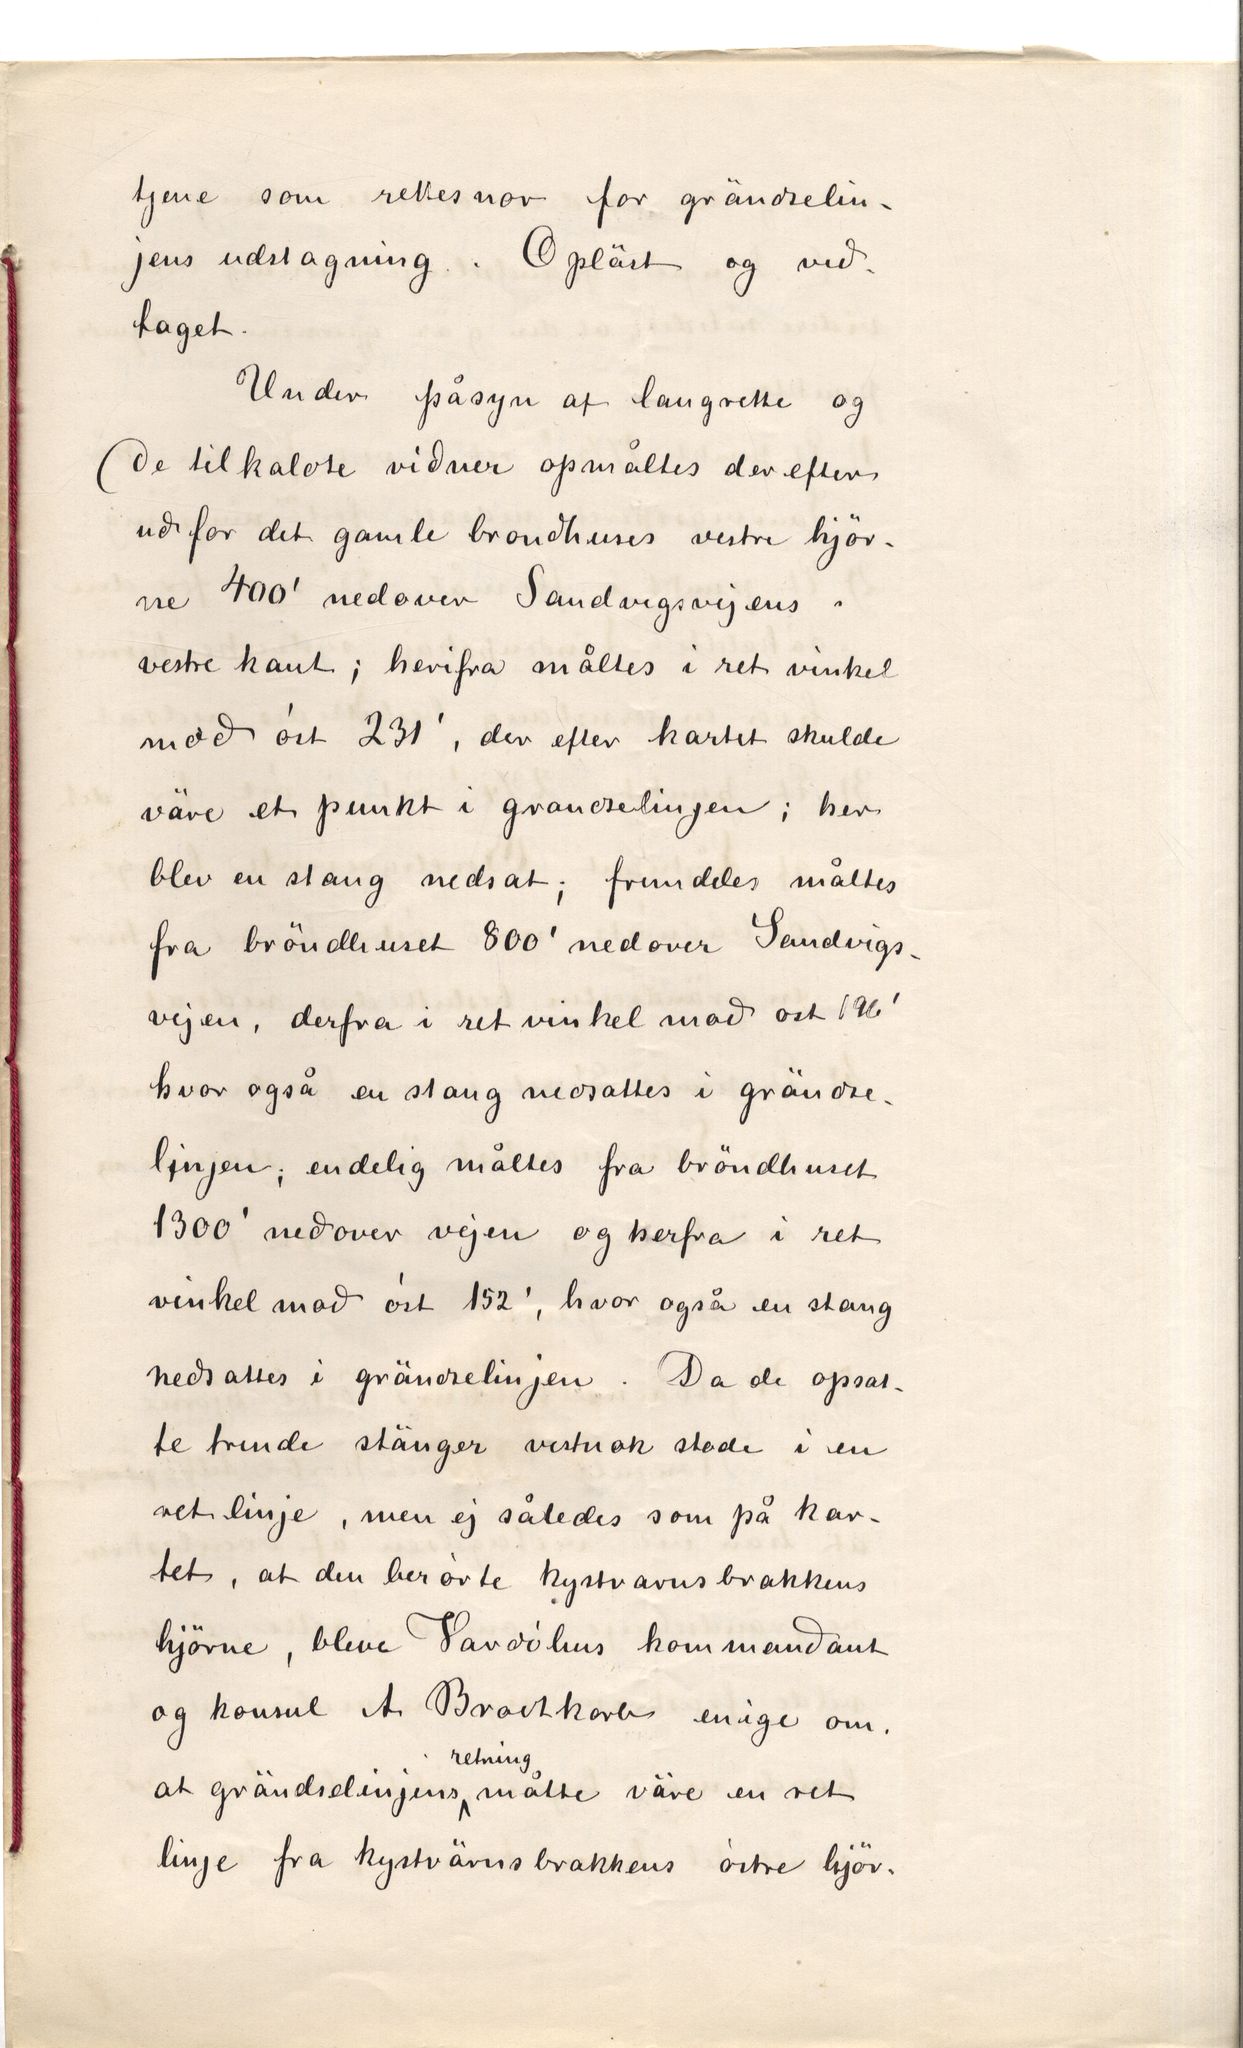 tjene som rettesnor for grändselin-
jens udstagning. Opläst og ved-
taget.
Under påsyn af laugrette og
de tilkaldte vidner opmåltes derefter
ud for det gamle brondhuses vestre hjör-
ne 400' nedover Sandvigsvejens
vestre kant; herifra måltes i ret vinkel
mod öst 231', der efter kartet skulde
väre et punkt i grandselinjen; her
blev en stang nedsat; fremdeles måltes
fra bröndhuset 800' nedover Sandvigs-
vejen, derfra i ret vinkel mod ost 196'
hvor også en stang nedsattes i grändse-
linjen; endelig måltes fra bröndhuset
1300' nedover vejen og herfra i ret
vinkel mod öst 152', hvor også en stang
nedsattes i grändselinjen. Da de opsat-
te trende stänger vestnok stode i en
ret linje, men ej således som på kar-
tet, at den berörte kystvarnsbrakkens
hjörne, bleve Vardöhus kommandant
og konsul A Brodtkorb enige om.
at grändselinjens retning måtte väre en ret
linje fra kystvärnsbrakkens östre hjör-